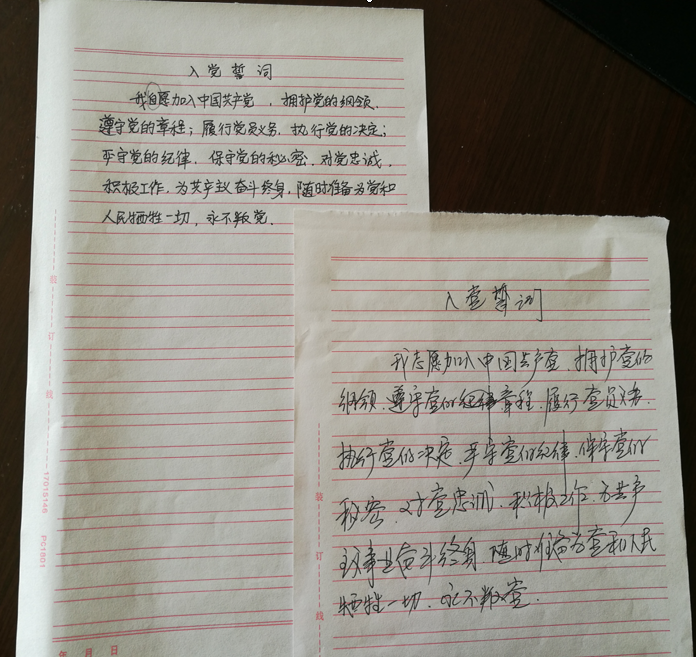 入党誓词
我自愿加入中国共产党，拥护党的纲领.
遵守党的章程；履行党员义务，执行党的决定；
严守党的纪律，保守党的秘密，对党忠诚，
积极工作，为共产主义奋斗终身，随时准备为党和
人民牺牲一切，永不叛党.
装
订
线
17015146
PG1601
年 月 日
入党誓词
我志愿加入中国共产党，拥护党的
纲领，遵守党的章程，履行党员义务，
执行党的决定，严守党的纪律，保守党的
秘密，对党忠诚，积极工作，为共产
主义事业奋斗终身，随时准备为党和人民
牺牲一切，永不叛党.
装
订
线